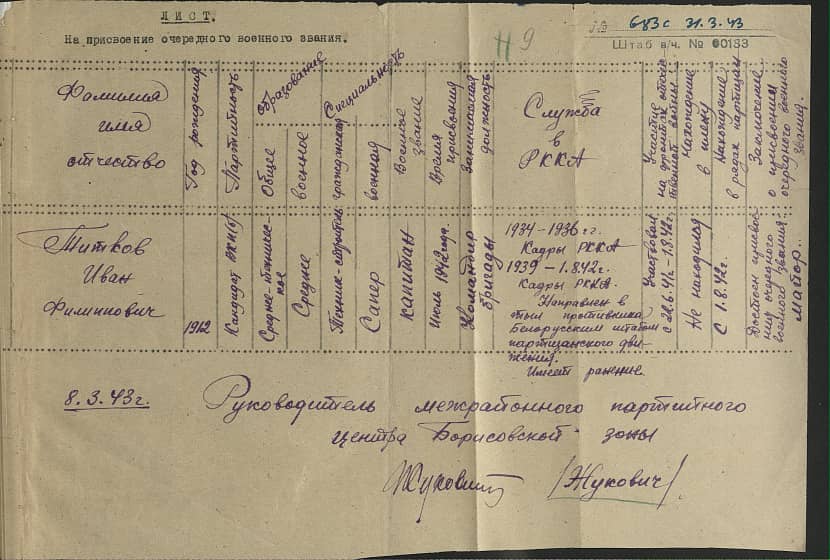 ЛИСТ.
На присвоение очередного военного звания.
683с 31.3.43
Штаб в/ч. № 00133
Н 9
Фамилия
имя
отчество
Год рождения
Партийность
Образование
Общее
военное
Специальность
гражданская
военная
Военное
звание
Время
присвоения
Занимаемая
должность
Служба
в
РККА
Участие
на фронтах отече-
ственной войны
Нахождение
в плену
Нахождение
в рядах партизан
Заключение
о присвоении
очередного военного
звания.
Титков
Иван
Филиппович
1912
Кандидат ВКП(б)
Средне-техничес-
кое
Среднее
Техник-строитель
Сапер
капитан
Июль 1942 года.
Командир
бригады
1934-1936 гг.
Кадры РККА
1939 - 1.8.42г.
Кадры РККА.
Направлен в
тыл противника
Белорусским штабом
партизанского дви-
жения.
Имеет ранение.
Участвовал
с 22.6.41г - 1.8.42г.
Не находился
С 1.8.42г.
Достоен присвое-
ния очередного
военного звания
майор.
8.3.43г.
Руководитель межрайонного партийного
центра Борисовской зоны
Жукович /Жукович/